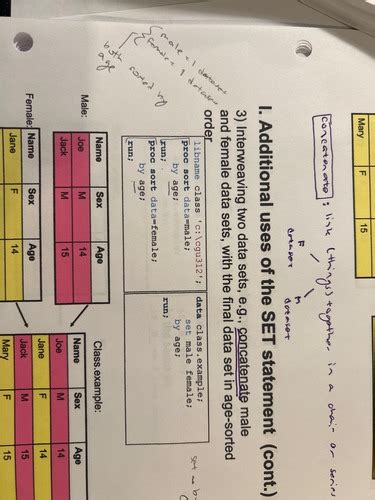 Mary F 15
concatenate: link (things) together in a chain or series
F M
dataset dataset
I. Additional uses of the SET statement (cont.)
3) Interweaving two data sets, e.g., concatenate male
and female data sets, with the final data set in age-sorted
order
libname class 'c:\cgu312';
proc sort data=male;
by age;
run;
proc sort data=female;
by age;
run;
data class.example;
set male female;
by age;
run;
male = 1 dataset
female = 1 dataset
both sorted by
age
set = b
Male:
Name Sex Age
Joe M 14
Jack M 15
Female:
Name Sex Age
Jane F 14
Class.example:
Name Sex Age
Joe M 14
Jane F 14
Jack M 15
Mary F 15